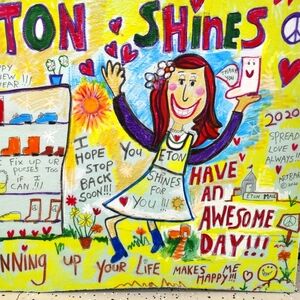 TON SHINES
PPY
NEW
YEAR !!!
THANK
YOU
2020
SPREAD
LOVE
ALWAYS!
I
HOPE
STOP
BACK
SOON!!!
You
ETON
SHINES
FOR
YOU !!!
I FIX UP UR
PURSES TOO
IF I
CAN!!!
HAVE
AN
AWESOME
DAY!!!
ETON MALL
NNING UP YOUR LIFE MAKES ME
HAPPY!!!